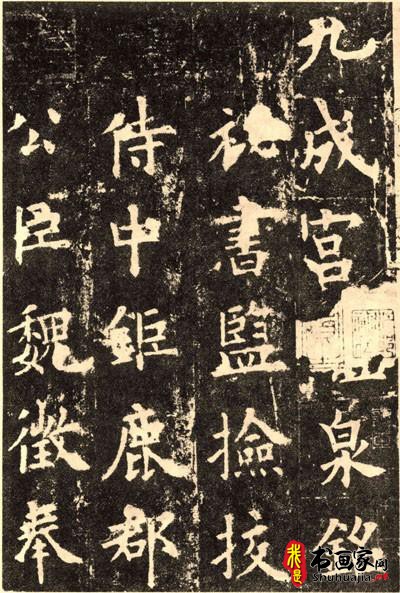 九成宫泉銘
祕書監撿挍
侍中鉅鹿郡
公臣魏徵奉
我是
书画家网
Shuhuajia